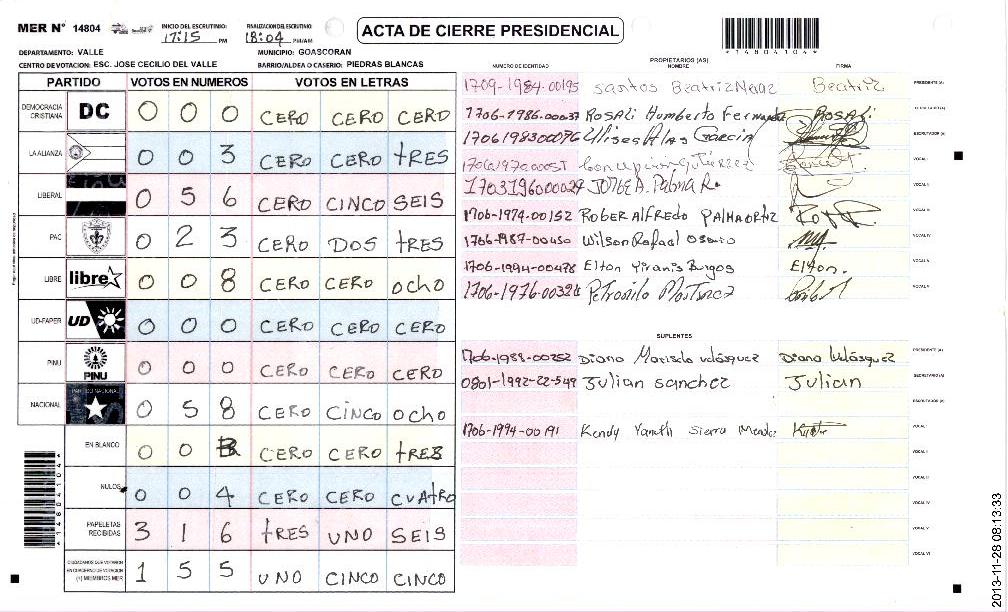 MER Nº 14804
INICIO DEL ESCRUTINIO: 17:15 PM
FINALIZACION DEL ESCRUTINIO 18:04 PM/AM
ACTA DE CIERRE PRESIDENCIAL
*14804104*
DEPARTAMENTO: VALLE
MUNICIPIO: GOASCORAN
CENTRO DE VOTACION: ESC. JOSE CECILIO DEL VALLE
BARRIO/ALDEA O CASERIO: PIEDRAS BLANCAS
PARTIDO VOTOS EN NUMEROS VOTOS EN LETRAS
DEMOCRACIA CRISTIANA DC 0 0 0 CERO CERO CERO
LA ALIANZA 0 0 3 CERO CERO tRES
LIBERAL 0 5 6 CERO CINCO SEIS
PAC 0 2 3 CERO DOS tRES
LIBRE libre 0 0 8 CERO CERO ocho
UD-FAPER UD 0 0 0 CERO CERO CERO
PINU PINU 0 0 0 CERO CERO CERO
NACIONAL 0 5 8 CERO CINCO ocho
EN BLANCO 0 0 3 CERO CERO tRES
NULOS 0 0 4 CERO CERO CVAtRO
PAPELETAS RECIBIDAS 3 1 6 tRES UNO SEIS
CIUDADANOS QUE VOTARON EN CUADERNO DE VOTACION (+) MIEMBROS MER 1 5 5 UNO CINCO CINCO
*14804104*
PROPIETARIOS (AS)
NUMERO DE IDENTIDAD NOMBRE FIRMA
1709-1984-00195 santos Beatriz Beatriz PRESIDENTE (A)
1706-1986-00037 ROSALi Humberto ROSALi
Ulises Alas Garcia ESCRUTADOR (A)
Concepcion Gutierrez VOCAL I
JORGE A. Palma R. VOCAL II
1706-1974-00152 ROBER AlFREDO PALMA ORtiz VOCAL III
1706-1987-00450 Wilson Rafael Osorio VOCAL IV
1706-1994-00478 Elton Yiranis Burgos Elton. VOCAL V
Petronilo Martinez
SUPLENTES
1706-1988-00252 Diana Marisela Velásquez Diana Velásquez PRESIDENTE (A)
0801-1992-22549 Julian sanchez Julian SECRETARIO (A)
ESCRUTADOR (A)
1706-1994-00191 Kendy Yaneth Sierra Mendez VOCAL I
VOCAL II
VOCAL III
VOCAL IV
VOCAL V
VOCAL VI
2013-11-28 08:13:33